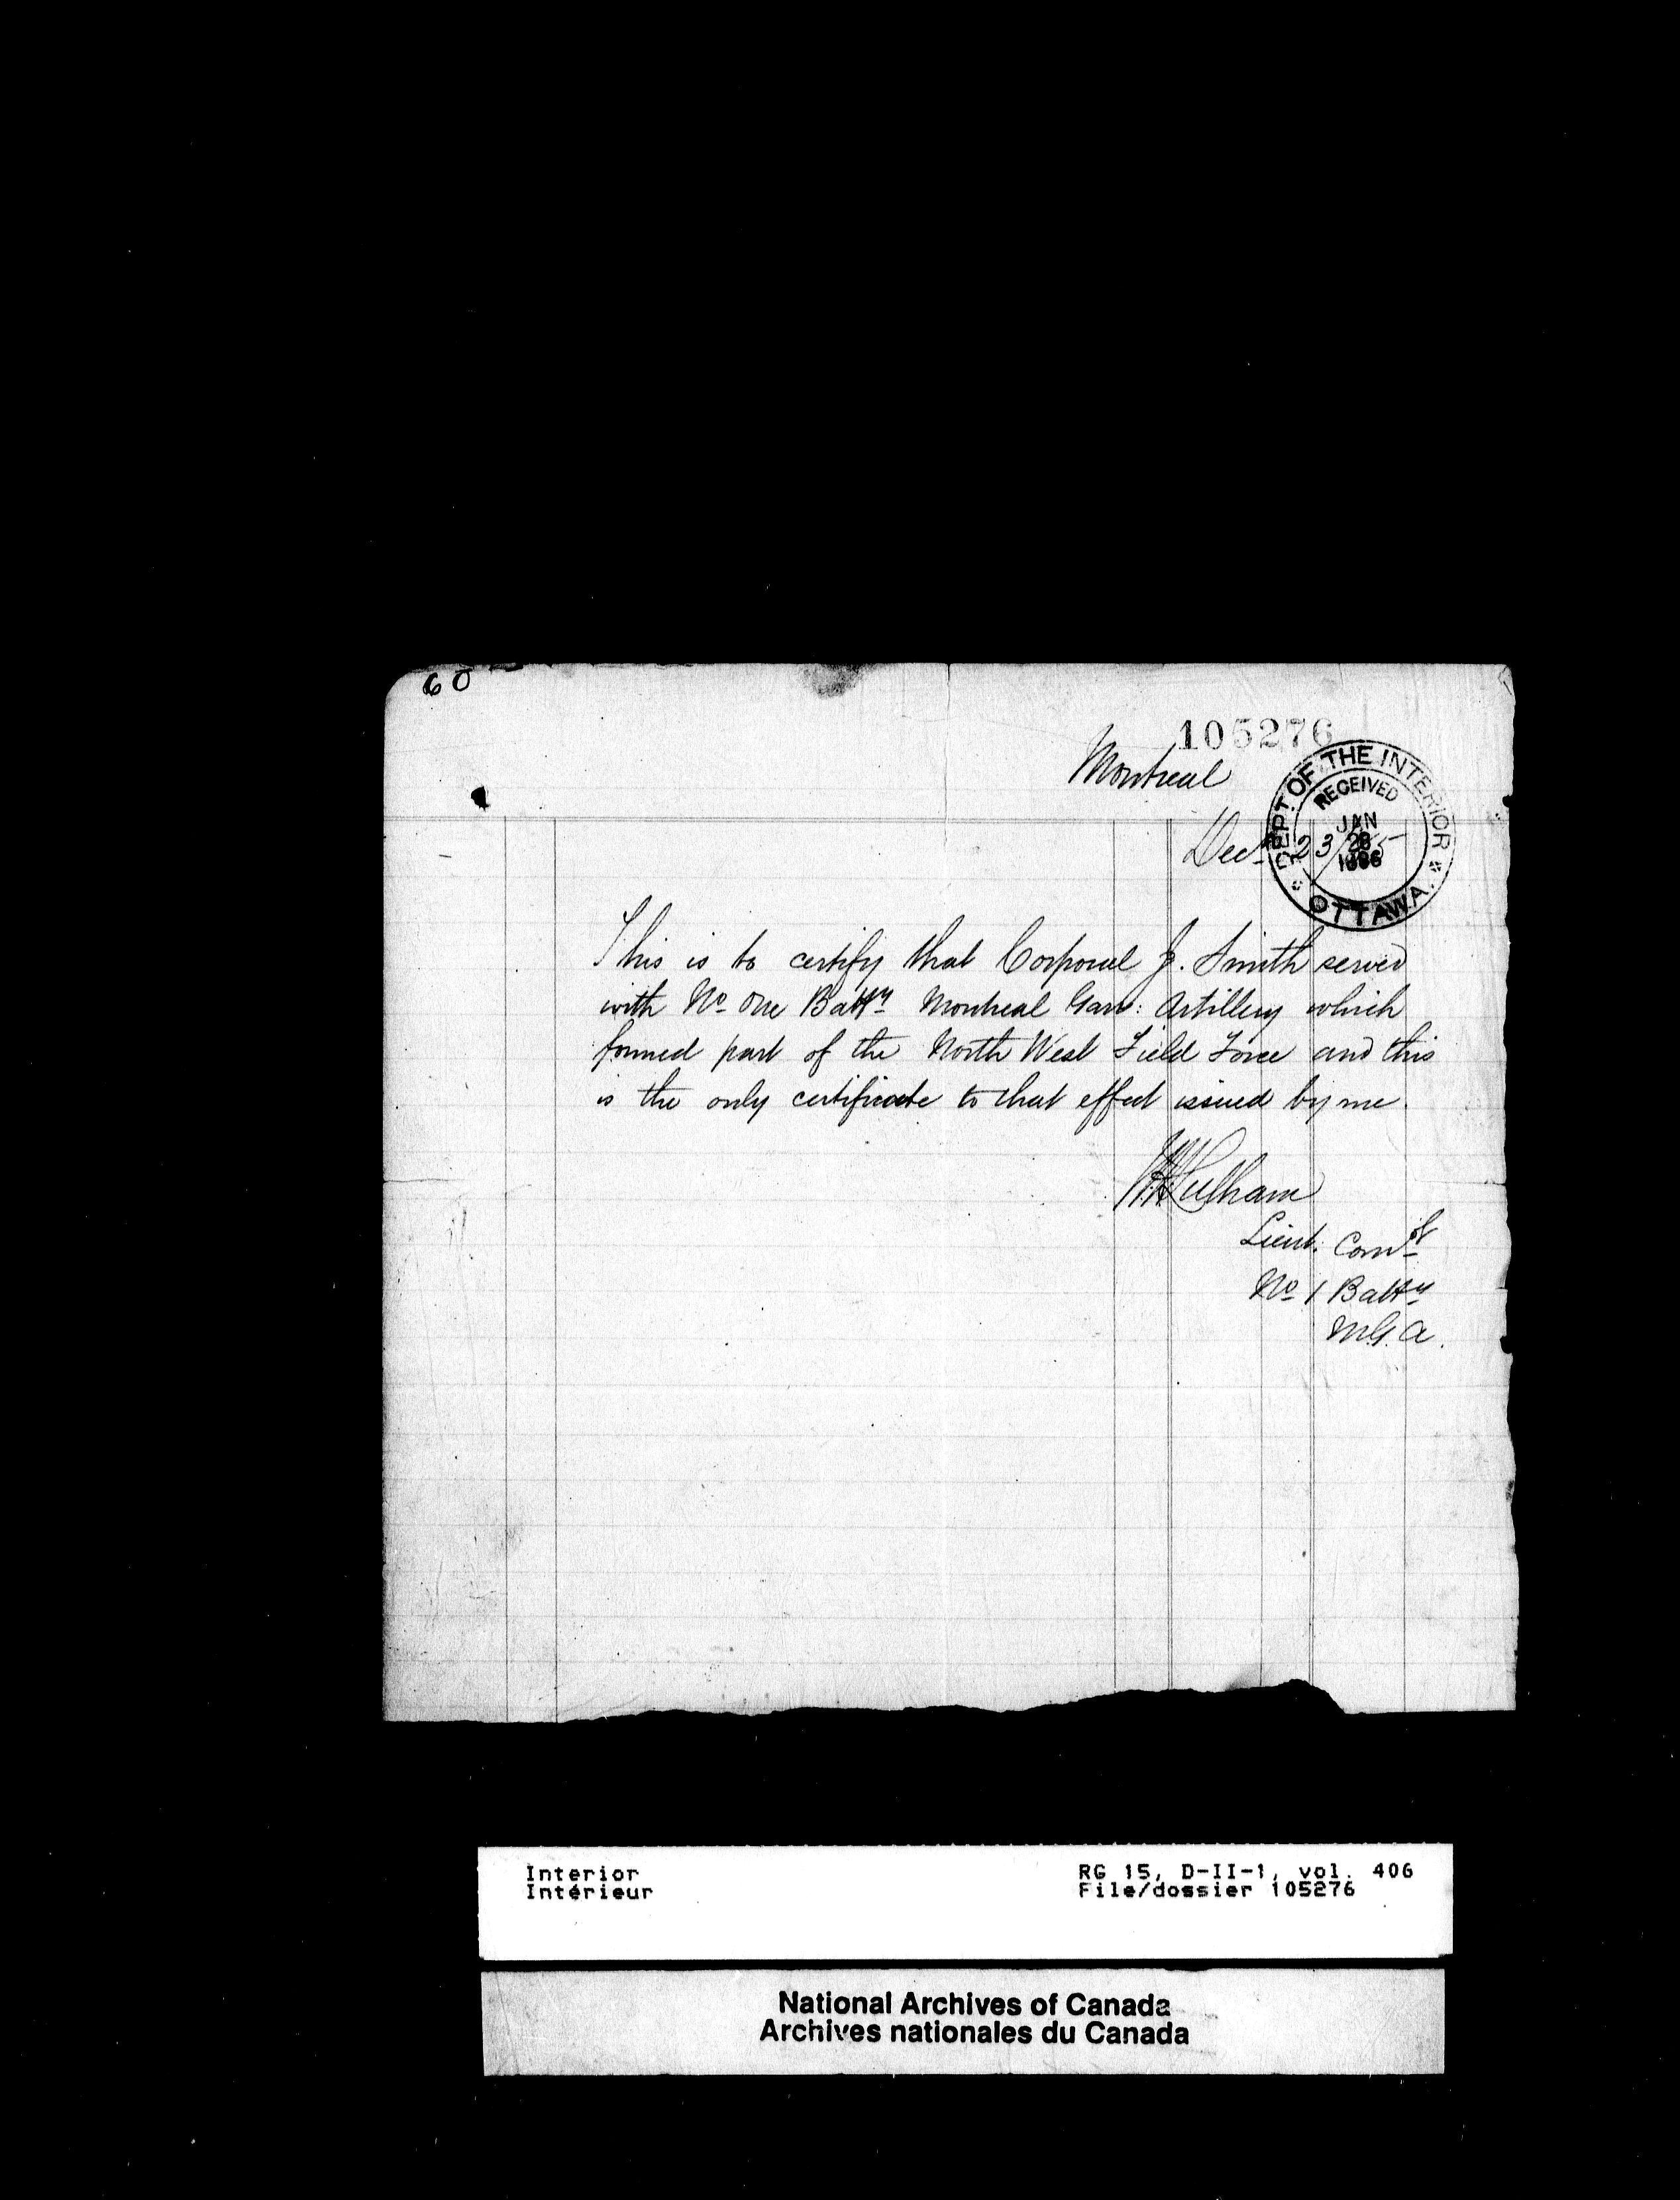 60
105276
Montreal
DEPT. OF THE INTERIOR
RECEIVED
JAN
1886
OTTAWA.
Decr 23/85
This is to certify that Corporal J. Smith served
with No One Batty Montreal Garr: Artillery which
formed part of the North West Field Force and this
is the only certificate to that effect issued by me.
Lieut. Comdg
No 1 Batty
M.G.A.
Interior
Intérieur
RG 15, D-II-1, vol. 406
File/dossier 105276
National Archives of Canada
Archives nationales du Canada